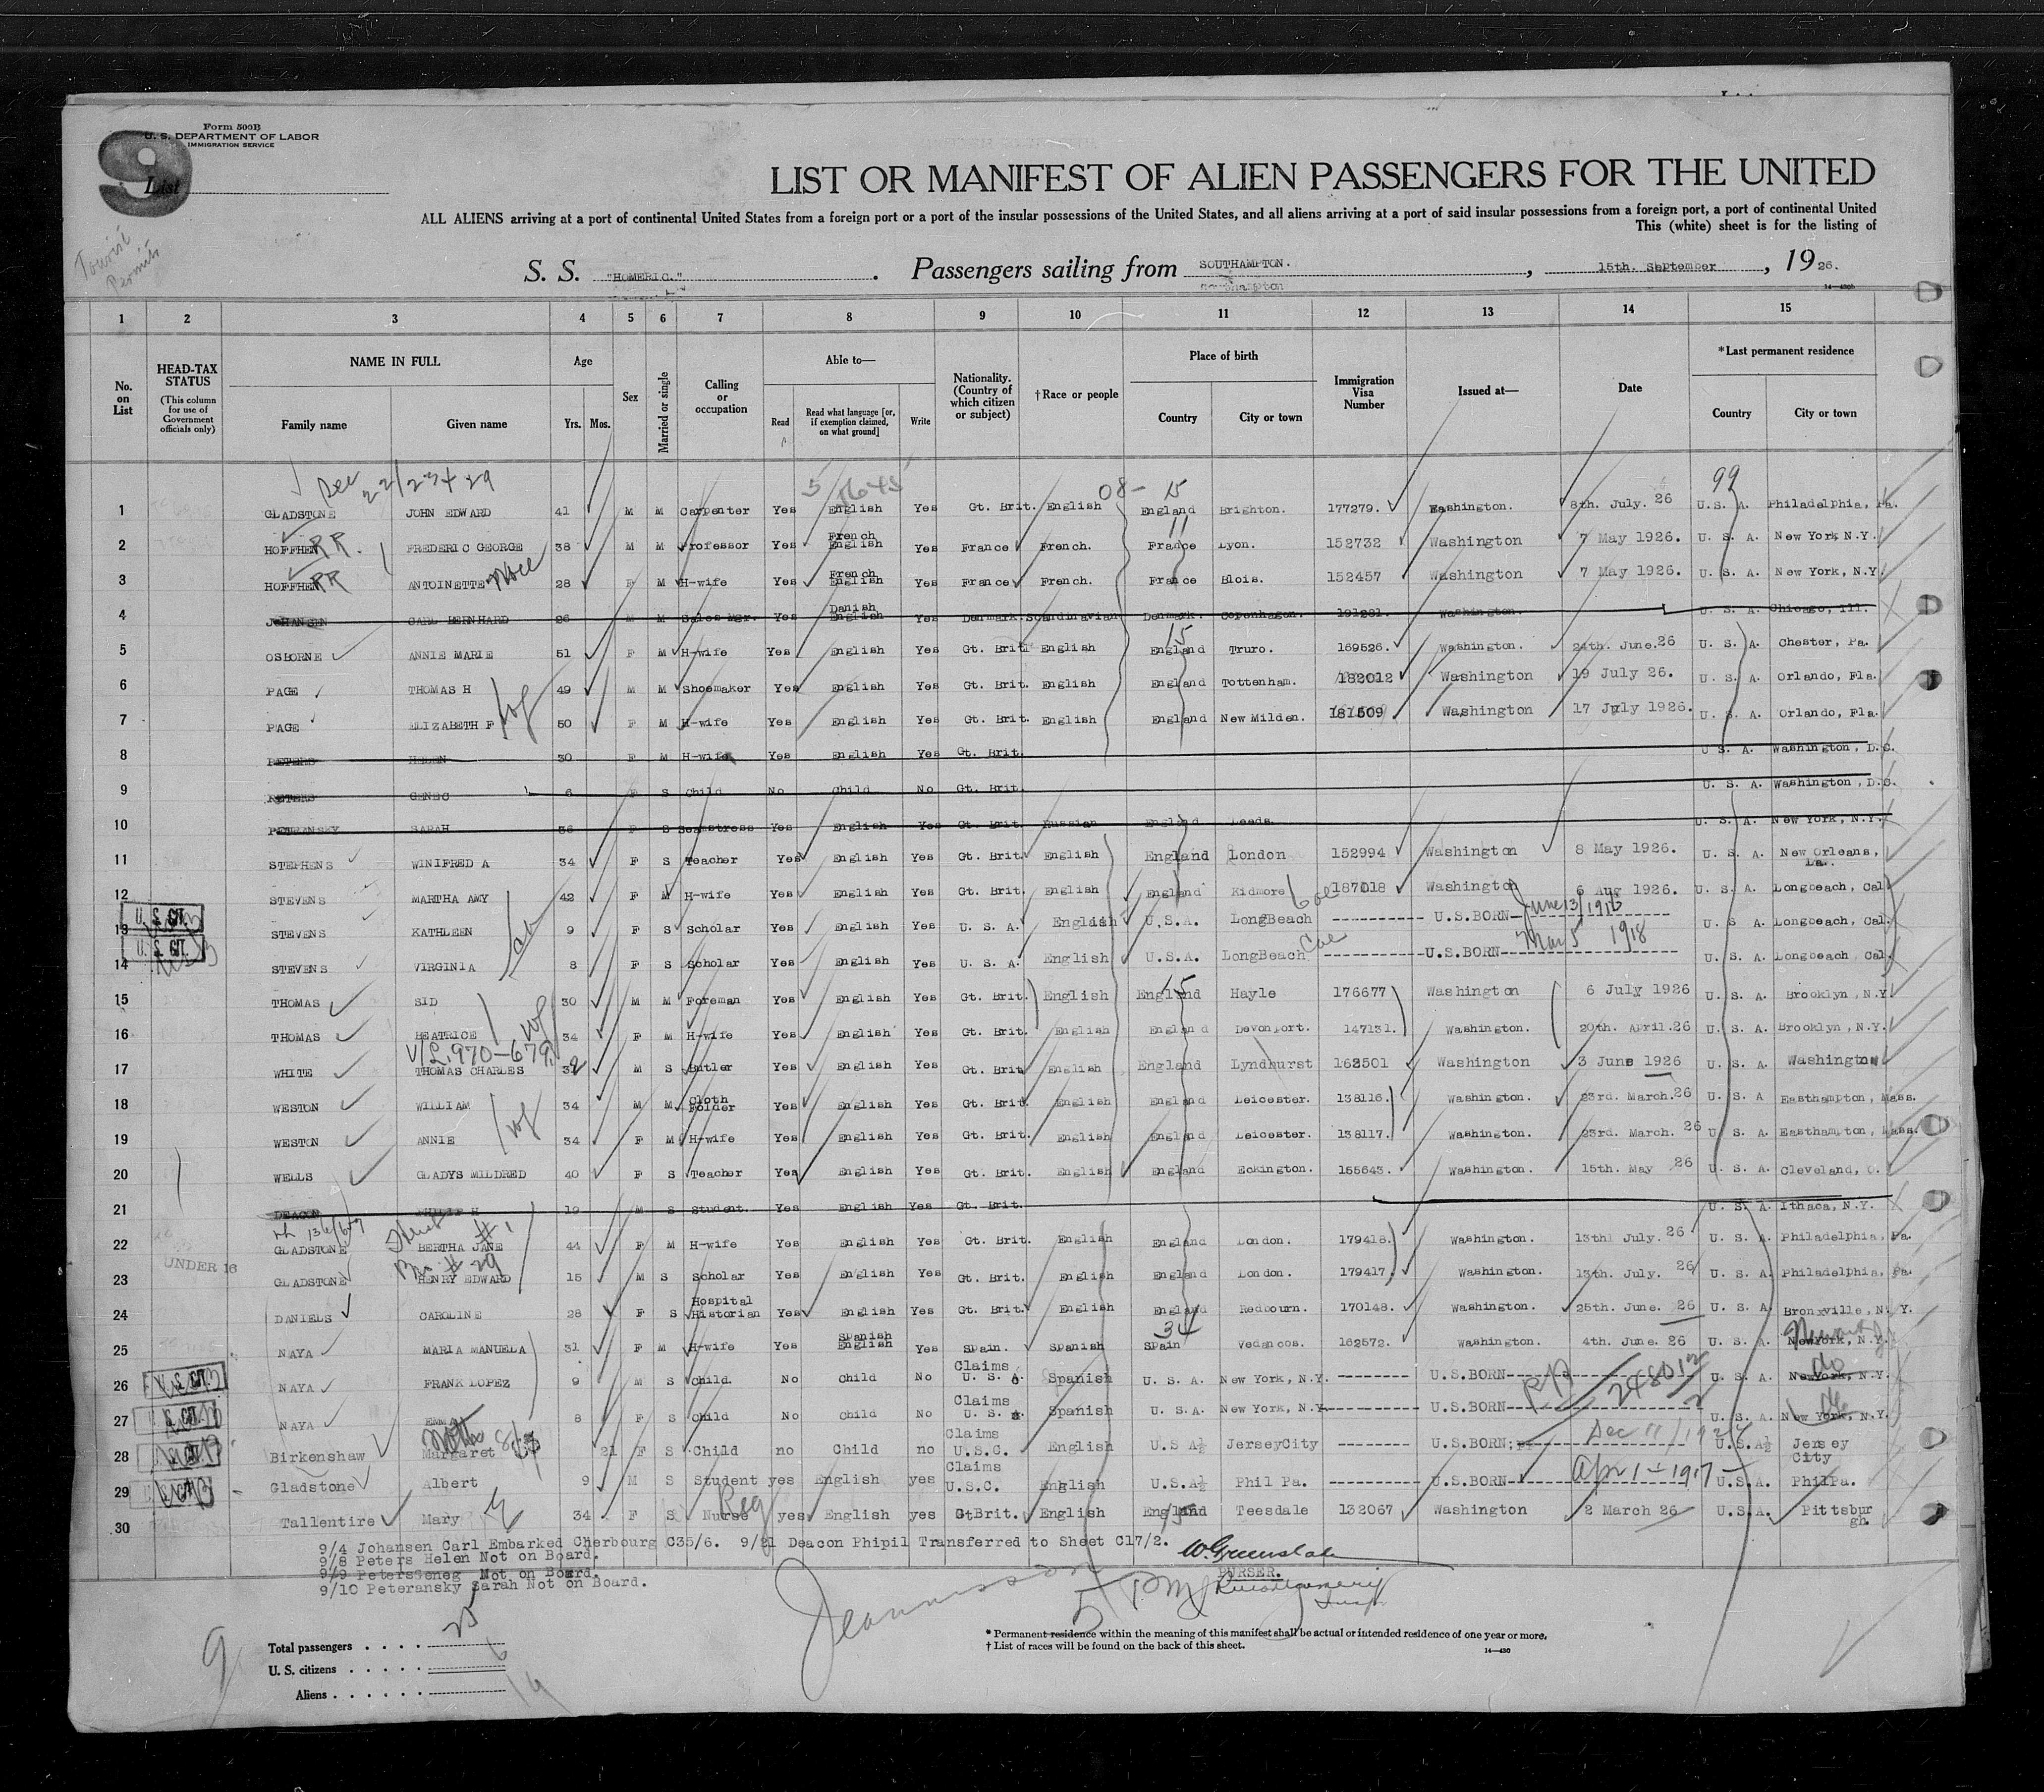 Form 500B
U. S. DEPARTMENT OF LABOR
IMMIGRATION SERVICE
9
List
Tourist
Permits
LIST OR MANIFEST OF ALIEN PASSENGERS FOR THE UNITED
ALL ALIENS arriving at a port of continental United States from a foreign port or a port of the insular possessions of the United States, and all aliens arriving at a port of said insular possessions from a foreign port, a port of continental United
This (white) sheet is for the listing of
S. S. "HOMERIC." . Passengers sailing from SOUTHAMPTON. , 15th. September , 1926.
1 2 3 4 5 6 7 8 9 10 11 12 13 14 15
No. on List
HEAD-TAX STATUS
(This column for use of Government officials only)
NAME IN FULL
Family name
Given name
Age
Yrs. Mos.
Sex
Married or single
Calling or occupation
Able to—
Read
Read what language [or, if exemption claimed, on what ground]
Write
Nationality. (Country of which citizen or subject)
† Race or people
Place of birth
Country
City or town
Immigration Visa Number
Issued at—
Date
*Last permanent residence
Country
City or town
See 22/23 + 29
99
1 GLADSTONE JOHN EDWARD 41 M M Carpenter Yes English Yes Gt. Brit. English England Brighton. 177279. Washington. 8th. July. 26 U.S. A. Philadelphia, Pa.
2 HOFFHERR. FREDERIC GEORGE 38 M M Professor Yes French English Yes France French. France Lyon. 152732 Washington 7 May 1926. U. S. A. New York N.Y.
3 HOFFHERR ANTOINETTE 28 F M H-wife Yes French English Yes France French. France Blois. 152457 Washington 7 May 1926. U. S. A. New York, N.Y.
4 JOHANSEN CARL BERNHARD 26 M M Sales Mgr. Yes Danish English Yes Denmark Scandinavian Denmark. Copenhagen. 191281. Washington. U. S. A. Chicago, Ill.
5 OSBORNE ANNIE MARIE 51 F M H-wife Yes English Yes Gt. Brit English England Truro. 169526. Washington. 24th. June. 26 U. S. A. Chester, Pa.
6 PAGE THOMAS H 49 M M Shoemaker Yes English Yes Gt. Brit. English England Tottenham. 182012 Washington 19 July 26. U. S. A. Orlando, Fla.
7 PAGE ELIZABETH F 50 F M H-wife Yes English Yes Gt. Brit. English England New Milden. 181509 Washington 17 July 1926. U. S. A. Orlando, Fla.
8 PETERS HELEN 30 F M H-wife Yes English Yes Gt. Brit. U. S. A. Washington, D.C.
9 PETERS GENEG 6 F S Child No Child No Gt. Brit. U. S. A. Washington, D.C.
10 PETERANSKY SARAH 36 F S Seamstress Yes English Yes Gt. Brit Russian England Leeds. U. S. A. New York, N.Y.
11 STEPHENS WINIFRED A 34 F S Teacher Yes English Yes Gt. Brit. English England London 152994 Washington 8 May 1926. U. S. A. New Orleans, La.
12 STEVENS MARTHA AMY 42 F M H-wife Yes English Yes Gt. Brit. English England Kidmore 187018 Washington 6 Aug 1926. U. S. A. Longbeach, Cal
U. S. CIT.
13 STEVENS KATHLEEN 9 F S Scholar Yes English Yes U. S. A. English U.S.A. LongBeach Cal U.S.BORN June 13/1916 U. S A. Longbeach, Cal.
U. S. CIT.
14 STEVENS VIRGINIA 8 F S Scholar Yes English Yes U. S. A. English U.S.A. LongBeach Cal U.S.BORN Mar 5 1918 U. S. A. Longbeach Cal.
15 THOMAS SID 30 M M Foreman Yes English Yes Gt. Brit. English England Hayle 176677 Washington 6 July 1926 U. S. A. Brooklyn, N.Y.
16 THOMAS BEATRICE 34 F M H-wife Yes English Yes Gt. Brit. English England Devonport. 147131. Washington. 20th. April. 26 U. S. A. Brooklyn, N.Y.
V/L 970-679
17 WHITE THOMAS CHARLES 32 M S Butler Yes English Yes Gt. Brit English England Lyndhurst 162501 Washington 3 June 1926 U. S. A. Washington
18 WESTON WILLIAM 34 M M Cloth Folder Yes English Yes Gt. Brit. English England Leicester. 138116. Washington. 23rd. March. 26 U. S. A Easthampton, Mass.
19 WESTON ANNIE 34 F M H-wife Yes English Yes Gt. Brit. English England Leicester. 138117. Washington. 23rd. March. 26 U. S. A. Easthampton, Mass.
20 WELLS GLADYS MILDRED 40 F S Teacher Yes English Yes Gt. Brit. English England Eckington. 155643. Washington. 15th. May 26 U. S. A. Cleveland, O.
21 DEACON PHILIP H 19 M S Student Yes English Yes Gt. Brit. U. S. A. Ithaca, N.Y.
22 GLADSTONE BERTHA JANE 44 F M H-wife Yes English Yes Gt. Brit. English England London. 179418. Washington. 13th July. 26 U. S. A. Philadelphia, Pa.
UNDER 16
23 GLADSTONE HENRY EDWARD 15 M S Scholar Yes English Yes Gt. Brit. English England London. 179417. Washington. 13th. July. 26 U. S. A. Philadelphia, Pa.
24 DANIELS CAROLINE 28 F S Hospital Historian Yes English Yes Gt. Brit. English England Redbourn. 170148. Washington. 25th. June. 26 U. S. A. Bronxville, N. Y.
25 NAYA MARIA MANUELA 31 F M H-wife Yes Spanish English Yes Spain. Spanish Spain Vedancos. 162572. Washington. 4th. June. 26 U. S. A. NewYork, N.Y. Newark
U. S. CIT.
26 NAYA FRANK LOPEZ 9 M S Child. No Child No Claims U. S. Spanish U. S. A. New York, N.Y. U.S.BORN U. S. A. NewYork, N.Y. do
27 NAYA EMMA 8 F S Child No Child No Claims U. S. Spanish U. S.A. New York, N.Y. U.S.BORN U. S. A. New York, N.Y. do
28 Birkenshaw Margaret 21 F S Child no Child no Claims U.S.C. English U.S A½ JerseyCity U.S.BORN; Dec 11/1924 U.S.A½ Jersey City
29 Gladstone Albert 9 M S Student yes English yes Claims U.S.C. English U.S.A½ Phil Pa. U.S.BORN Apr 1st 1917 U.S.A. PhilPa.
30 Tallentire Mary 34 F S Nurse Reg yes English yes Gt.Brit. English England Teesdale 132067 Washington 2 March 26 U.S.A. Pittsburgh.
9/4 Johansen Carl Embarked Cherbourg C35/6. 9/21 Deacon Phipil Transferred to Sheet C17/2.
9/8 Peters Helen Not on Board.
9/9 PetersGeneg Not on Board.
9/10 Peteransky Sarah Not on Board.
PURSER.
Total passengers . . . . 25
U. S. citizens . . . . . 6
Aliens . . . . . . 19
9
* Permanent residence within the meaning of this manifest shall be actual or intended residence of one year or more.
† List of races will be found on the back of this sheet.
14—430